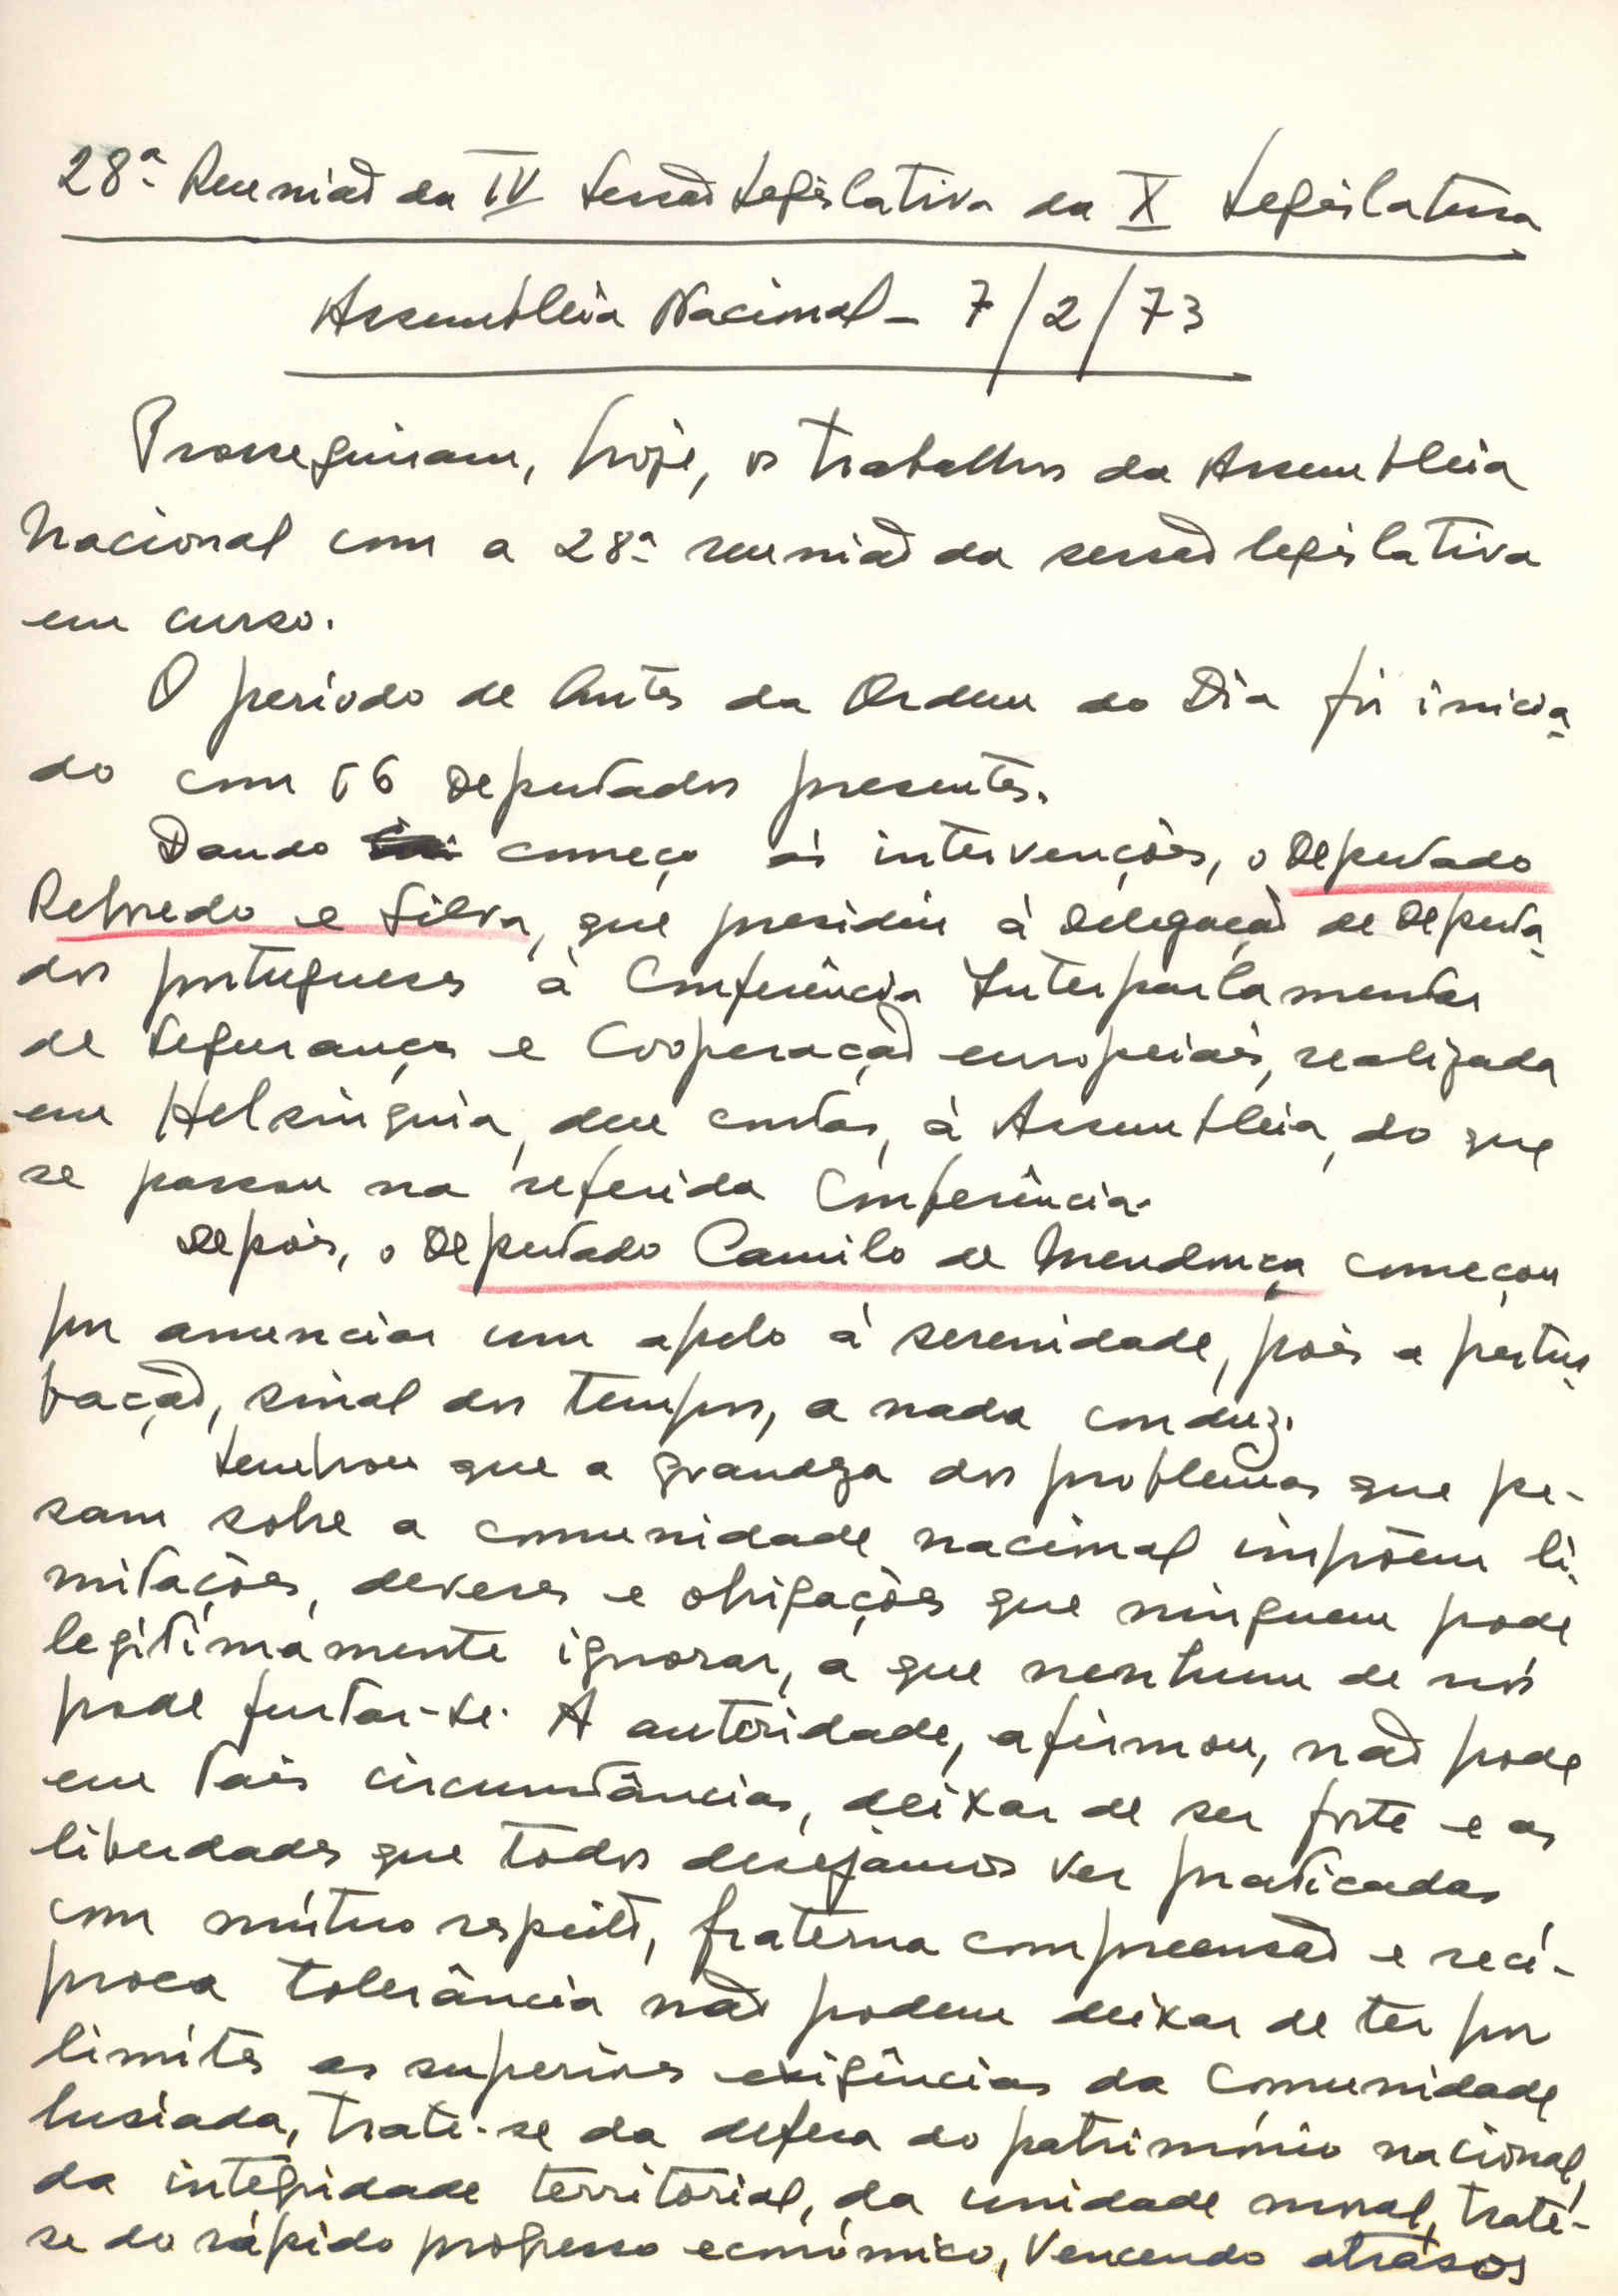 28ª Reunião da IV Sessão Legislativa da X Legislatura
Assembleia Nacional - 7/2/73
Prosseguiram, hoje, os trabalhos da Assembleia
Nacional com a 28ª reunião da sessão legislativa
em curso.
O período de Antes da Ordem do Dia foi inicia-
do com 56 Deputados presentes.
Dando começo às intervenções, o Deputado
Rebredo e Silva, que presidiu à Delegação de Deputa-
dos portugueses à Conferência Interparlamentar
de Segurança e Cooperação europeias, realizada
em Helsínquia, deu contas, à Assembleia, do que
se passou na referida Conferência.
Depois, o Deputado Camilo de Mendonça começou
por anunciar um apelo à serenidade, pois a pertur-
bação, sinal dos tempos, a nada conduz.
Lembrou que a grandeza dos problemas que pe-
sam sobre a comunidade nacional impõem li-
mitações, deveres e obrigações que ninguem pode
legítimamente ignorar, a que nenhum de nós
pode furtar-se. A autoridade, afirmou, não pode
em tais circunstâncias, deixar de ser forte e as
liberdades que todos desejamos ver praticadas
com mútuo respeito, fraterna compreensão e recí-
proca tolerância não podem deixar de ter por
limites as superiores exigências da Comunidade
lusíada, trate-se da defesa do património nacional,
da integridade territorial, da unidade moral, trate-
se do rápido progresso económico, vencendo atrasos